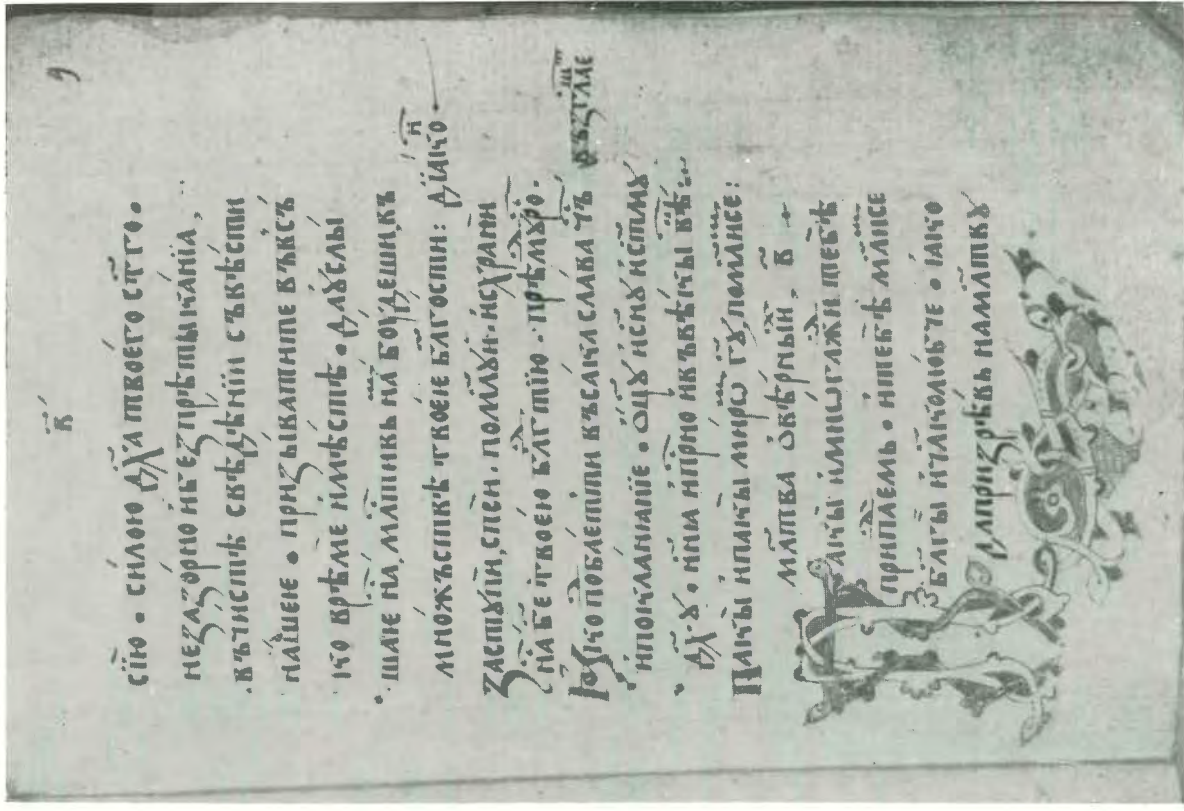 в҃
стїю • силою дх҃а твоего ст҃го •
незаꙁорно и беꙁ прѣтыканїа,
въ чистѣ свѣдѣнїи съвѣсти
нашеѥ • приꙁывати те въ въсꙗ
ко врѣме и мѣсте • да услы
шаѥ на, млтⷭ҇ивь на боудеши, въ
множъствѣ твоѥ бл҃гости: дїако
Ꙁаступи, сп҃си, помлуи и схрани
на б҃е твоею блгⷣтїю • прѣмⷣуро.
Ꙗко подобаетти въсака слава чъ въꙁглаше
и покланꙗнїе • оц҃ꙋ и сн҃ꙋ и ст҃мꙋ
дх҃ꙋ • нн҃ꙗ и прⷭ҇но и въ вѣкы вѣ
Пакы и пакы миро гꙋ помлимсе:
млтва о вѣрныи, в҃
Пакы и мнѡгажⷣи тебѣ
припаⷣемь • и тебѣ млимсе
бл҃гы и чл҃колюбче • ꙗко
да приꙁрѣвь на млтвꙋ